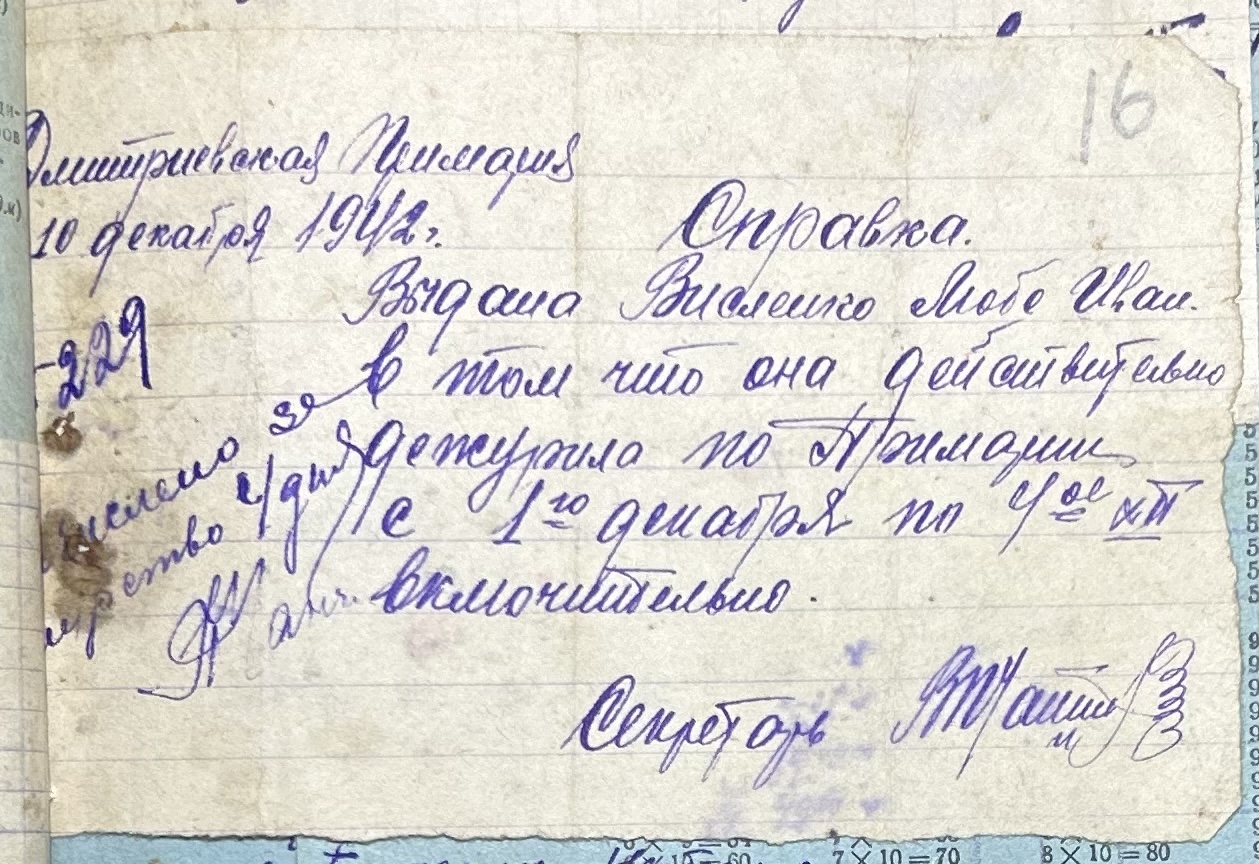 16
Дмитриевская Примария
10 декабря 1942 г.
Справка.
Выдана Висленко Любе Иван.
в том что она действительно
дежурила по Примарии
с 1го декабря по 4ое XII
включительно.
Секретарь
229
за
4 дня
7 × 10 = 70
8 × 10 = 80